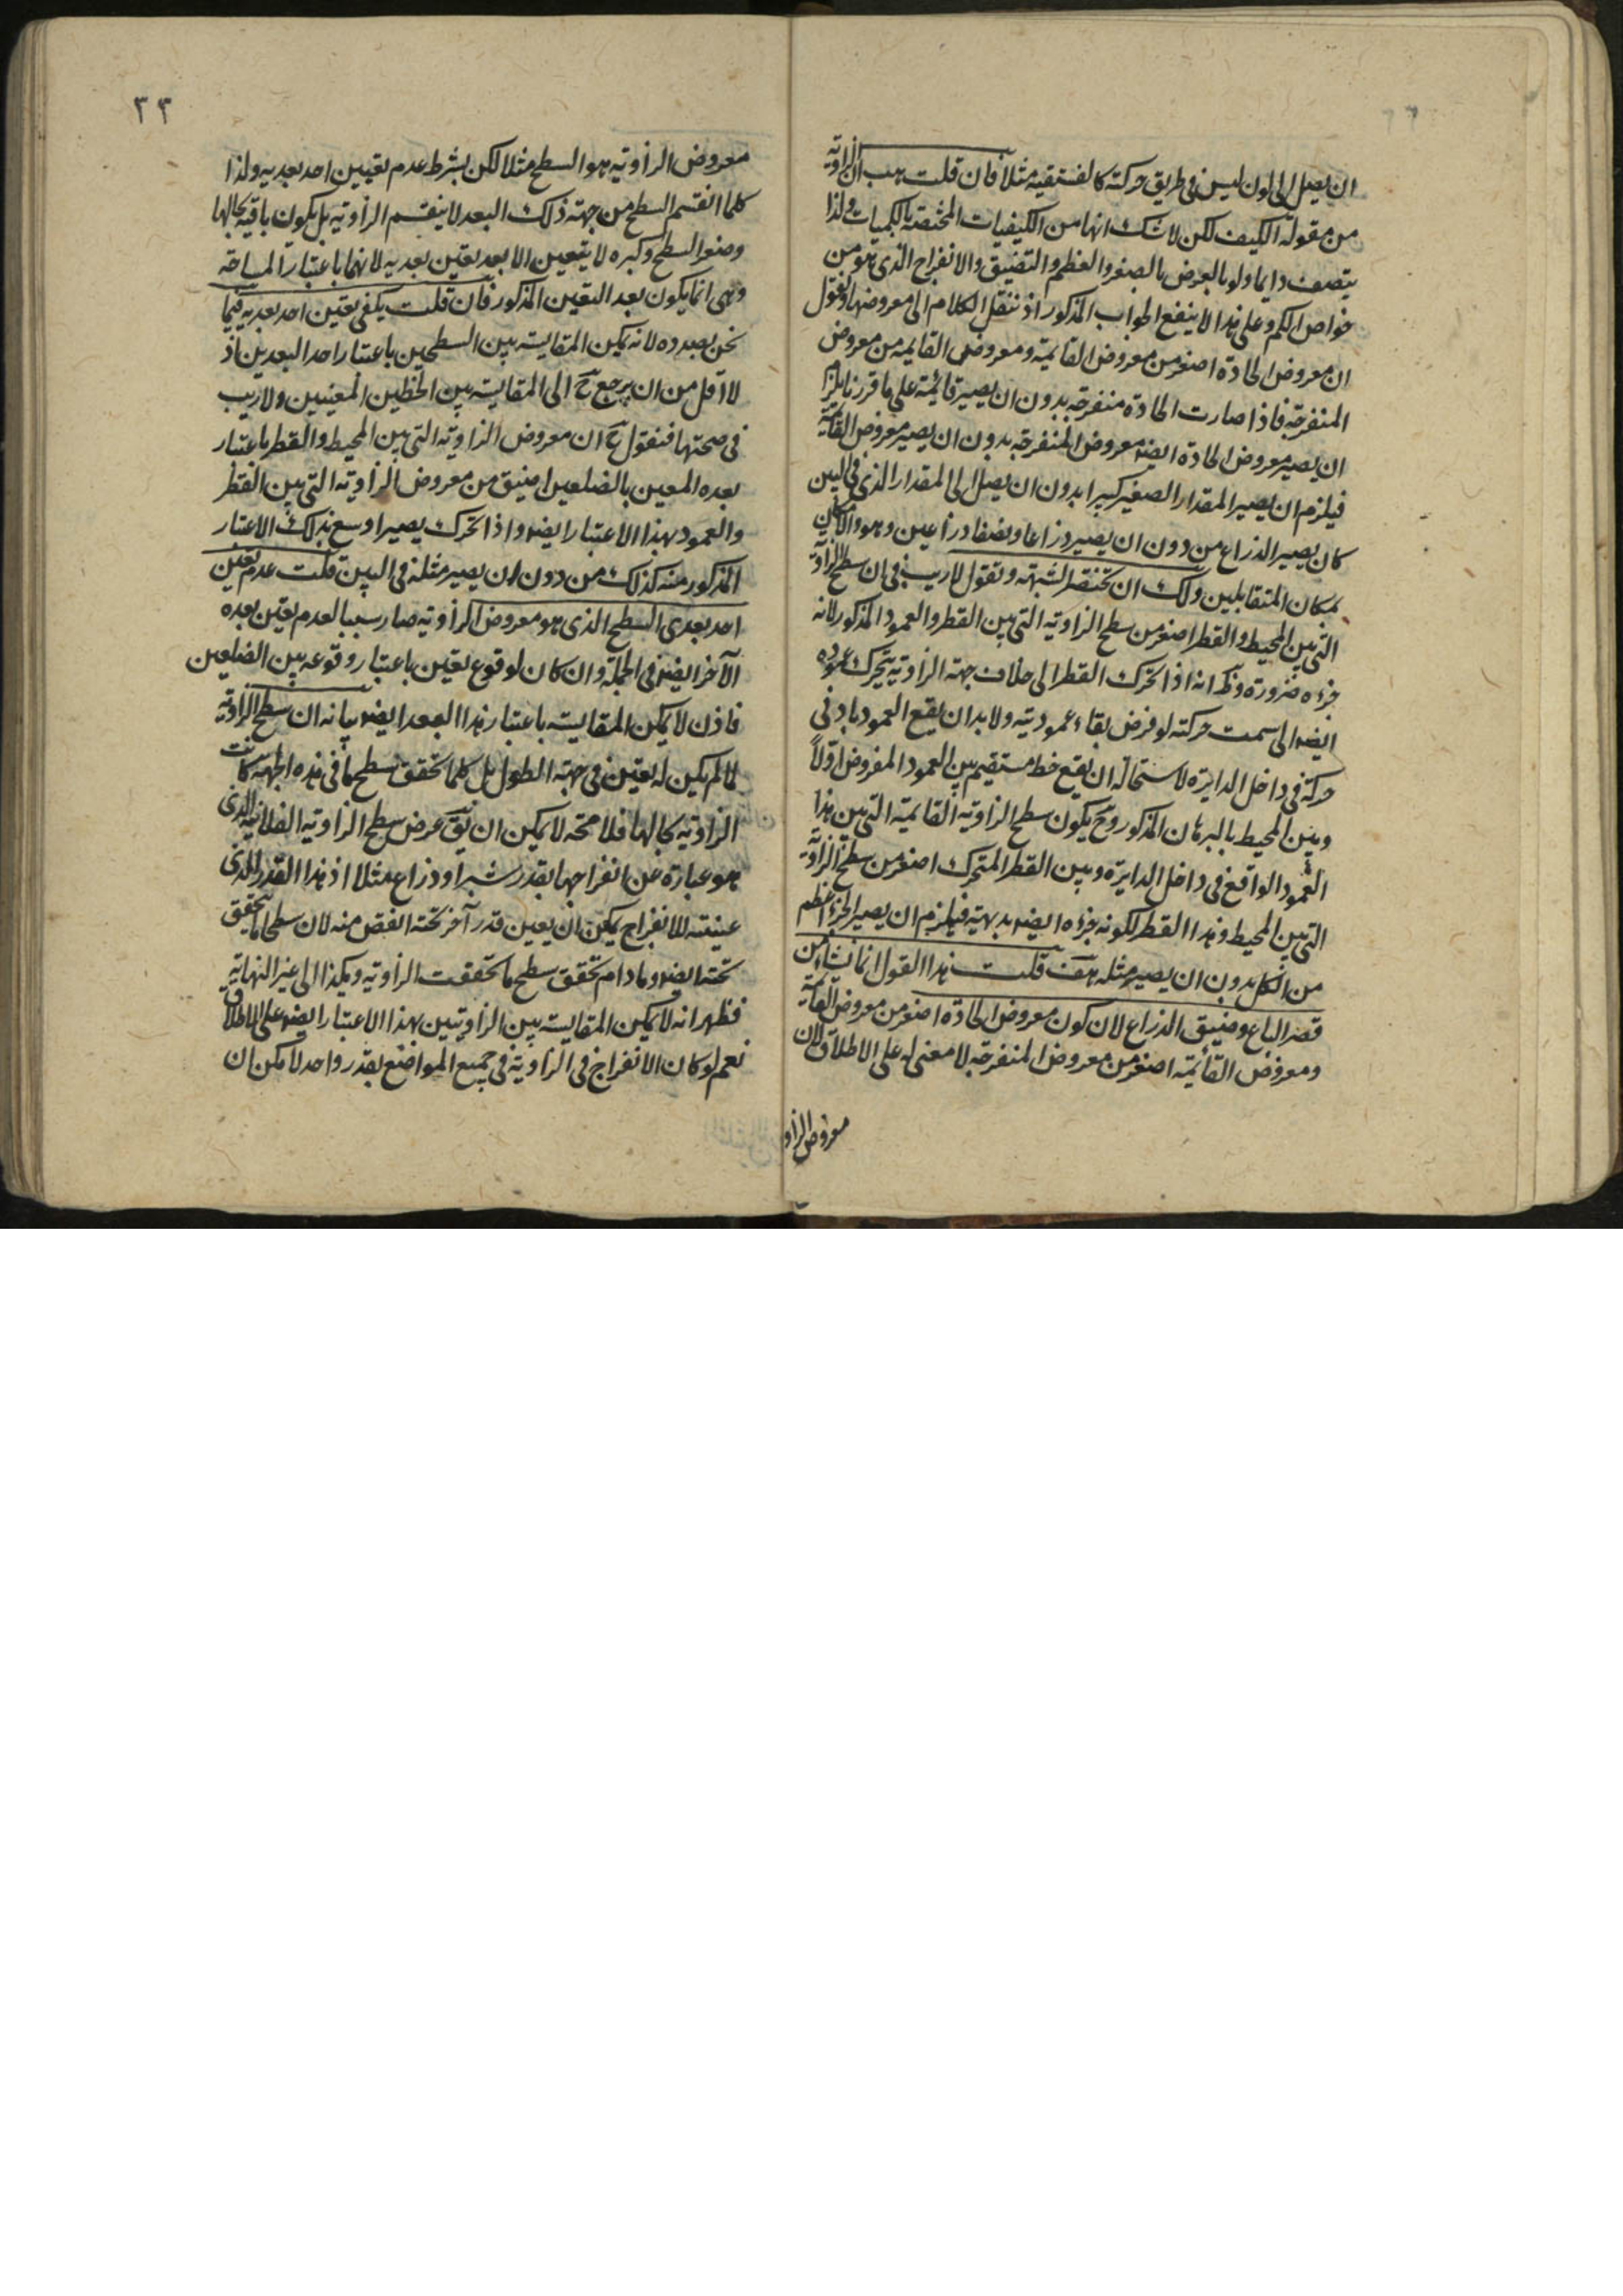 ان يصل الى لون ليس في طريق حركته كالفستقية مثلا فان قلت هب ان الزاوية
من مقولة الكيف لكن لا شك انها من الكيفيات المختصة بالكميات ولذا
يتصف دايما ولو بالعرض بالصغر والعظم والتضيق والانفراج الذي هو من
خواص الكم وعلى هذا لا ينفع الجواب المذكور اذ ننقل الكلام الى معروضها ونقول
ان معروض الحادة اصغر من معروض القايمة ومعروض القايمة من معروض
المنفرجة فاذا صارت الحادة منفرجة بدون ان يصير قائمة على ما قررنا يلزم
ان يصير معروض الحادة ايضا معروض المنفرجة بدون ان يصير معروض القائمة
فيلزم ان يصير المقدار الصغير كبيرا بدون ان يصل الى المقدار الذي في البين
كان يصير الذراع من دون ان يصير ذراعا ونصفا ذراعين وهو والامكان
بمكان المتقابلين ولك ان تختصر الشبهة وتقول لا ريب في ان سطح الزاوية
التي بين المحيط والقطر اصغر من سطح الزاوية التي بين القطر والعمود المذكور لانه
جزءه ضرورة وذكر انه اذا تحرك القطر الى خلاف جهة الزاوية يتحرك عموده
ايضا الى سمت حركته لو فرض بقاء عموديته ولا بد ان يقع العمود باد في
حركة في داخل الدايرة لاستحالة ان يقع خط مستقيم بين العمود المفروض اولا
وبين المحيط بالبرهان المذكور وح يكون سطح الزاوية القايمة التي بين هذا
العمود الواقع في داخل الدايرة وبين القطر المتحرك اصغر من سطح الزاوية
التي بين المحيط وهذا القطر لكونه جزءه ايضا بديهة فيلزم ان يصير الجزء اعظم
من الكل بدون ان يصير مثله هف قلت هذا القول انما نشأ من
قصر الباع وضيق الذراع لان كون معروض الحادة اصغر من معروض القايمة
ومعروض القائمة اصغر من معروض المنفرجة لا معنى له على الاطلاق لان
معروض الزاو
٣٣
معروض الزاوية هو السطح مثلا لكن بشرط عدم تعيين احد بعديه ولذا
كلما انقسم السطح من جهة ذلك البعد لا ينقسم الزاوية بل يكون باقية بحالها
وصغر السطح وكبره لا يتعين الا بعد تعين بعديه لانهما باعتبار المساحة
وهي انما يكون بعد التعين المذكور فان قلت يكفي تعين احد بعديه فيما
نحن بصدده لانه يمكن المقايسة بين السطحين باعتبار احد البعدين اذ
لا اقل من ان يرجع ح الى المقايسة بين الخطين المعينين ولا ريب
في صحتها فنقول ح ان معروض الزاوية التي بين المحيط والقطر باعتبار
بعده المعين بالضلعين اضيق من معروض الزاوية التي بين القطر
والعمود بهذا الاعتبار ايضا واذا تحرك يصير اوسع بذلك الاعتبار
المذكور منه كذلك من دون ان يصير مثله في البين قلت عدم تعين
احد بعدي السطح الذي هو معروض الزاوية صار سببا لعدم تعين بعده
الآخر ايضا في الجملة وان كان لوقوع تعين باعتبار وقوعه بين الضلعين
فاذن لا يمكن المقايسة باعتبار هذا البعد ايضا بيانه ان سطح الزاوية
لما لم يكن له تعين في جهة الطول بل كلما تحقق سطح ما في هذه الجهة كانت
الزاوية بحالها فلا محه لا يمكن ان يق عرض سطح الزاوية الفلانية الذي
هو عبارة عن انفراجها بقدر شبر او ذراع مثلا اذ هذا القدر الذي
عينته للانفراج يمكن ان يعين قدر آخر تحته انقص منه لان سطحا ما يتحقق
تحته ايضا وما دام تحقق سطح ما تحققت الزاوية وهكذا الى غير النهاية
فظهر انه لا يمكن المقايسة بين الزاويتين بهذا الاعتبار ايضا على الاطلاق
نعم لو كان الانفراج في الزاوية في جميع المواضع بقدر واحد لامكن ان